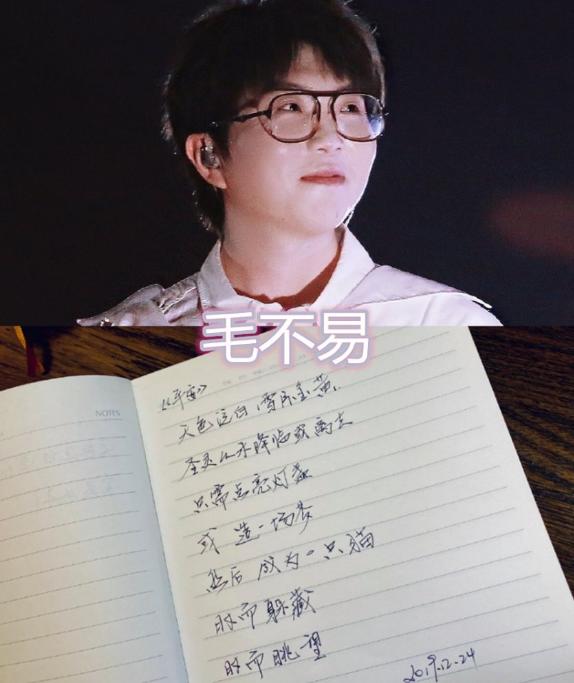 毛不易
NOTES
《平安》
天色泛白，雪原金黄
圣灵从不降临或离去
只需点亮灯盏
或造一场梦
然后成为一只猫
时而躲藏
时而眺望
2019.12.24